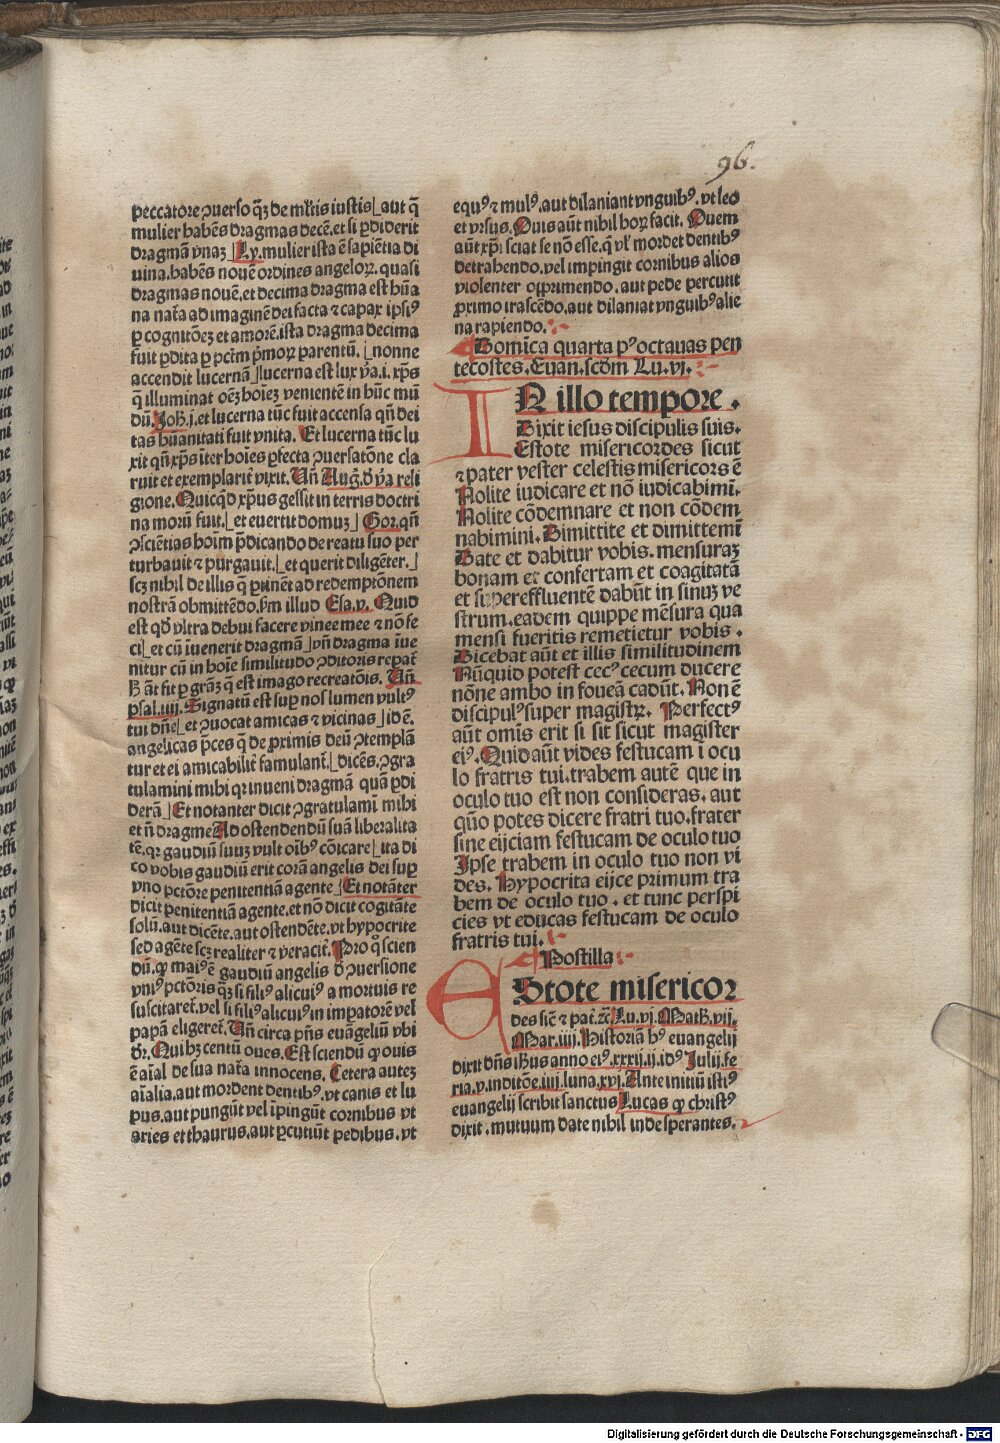 96.
peccatore ꝯuerso qȝ de ml̕tis iustis⌊aut q̄
mulier habēs dragmas decē.et si ꝑdiderit
dragmā vnaȝ⌋Ly.mulier ista ē sapiētia di
uina.habēs nouē ordines angeloꝝ.quasi
dragmas nouē.et decima dragma est hūa
na nat̄a ad imaginē dei facta ⁊ capax ipsiꝰ
ꝑ cognitōeȝ et amorē.ista dragma decima
fuit ꝑdita ꝑ pctm̄ p̄moꝝ parentū.⌊nonne
accendit lucernā⌋lucerna est lux ꝟa.i.xp̄s
q̄ illuminat oēȝ hoīeȝ venientē in hūc mū
dū.Joh̄.j.et lucerna tūc fuit accensa qn̄ dei
tas hūanitati fuit vnita. Et lucerna tūc lu
xit qn̄ xp̄s īter hoīes ꝑfecta ꝯuersatōne cla
ruit et exemplarit̄ vixit. Un̄ Auḡ.d̄ ꝟa reli
gione.Quicqd̄ xp̄us gessit in terris doctri
na morū fuit.⌊et euertit domuȝ⌋Gor.qn̄
ꝯsciētias hoīm p̄dicando de reatu suo per
turbauit ⁊ purgauit.⌊et querit diligēter.⌋
scȝ nihil de illis q̄ ꝑtinēt ad redemptōnem
nostrā obmittēdo.s̄m illud Esa.v. Quid
est qd̄ vltra debui facere vinee mee ⁊ nō fe
ci⌊et cū īuenerit dragmā⌋vn̄ dragma īue
nitur cū in hoīe similitudo ꝯditoris repat̄
h̄ āt fit ꝑ grāȝ q̄ est imago recreatōis. Un̄
psal.iiij.Signatū est suꝑ nos lumen vultꝰ
tui dn̄e⌊et ꝯuocat amicas ⁊ vicinas⌋id ē.
angelicas p̄ces q̄ de ꝓximis deū ꝯtemplā
tur et ei amicabilit̄ famulant̄.⌊dicēs.ꝯgra
tulamini mihi qꝛ inueni dragmā quā ꝑdi
derā⌋Et notanter dicit ꝯgratulamī mihi
et n̄ dragme Ad ostendendū suā liberalita
tē.qꝛ gaudiū suuȝ vult oībꝰ cōīcare⌊ita di
co vobis gaudiū erit corā angelis dei suꝑ
vno pctōre penitentiā agente⌋Et notāter
dicit penitentiā agente.et nō dicit cogitāte
solū.aut dicēte.aut ostendēte.vt hypocrite
sed agēte scȝ realiter ⁊ ꝟacit̄.Pro qͦ scien
dū.ꝙ maiꝰ ē gaudiū angelis d̄ ꝯuersione
vniꝰ pctōris qȝ si filiꝰ alicuiꝰ a mortuis re
suscitaret̄.vel si filiꝰ alicuiꝰ in impatorē vel̄
papā eligeret̄.Un̄ circa pn̄s euāgēliū vbi
dr̄.Qui hȝ centū oues.Est sciendū ꝙ ouis
ē aīal de sua nat̄a innocens. Cetera auteȝ
aīalia.aut mordent dentibꝰ.vt canis et lu
pus.aut pungūt vel īpingūt cornibus vt
aries et thaurus.aut ꝑcutiūt pedibus.vt
equꝰ ⁊ mulꝰ.aut dilaniant vnguibꝰ.vt leo
et vrsus.Ouis aūt nihil hoꝝ facit. Quem
aūt xp̄i sciat se nō esse.q̄ vl̕ mordet dentibꝰ
detrahendo.vel impingit cornibus alios
violenter opprimendo.aut pede percutit
ꝓximo irascēdo.aut dilaniat vnguibꝰ alie
na rapiendo.
Domīca quarta pꝰ octauas pen
tecostes.Euan.scd̄m Lu.vj.
IN illo tempore.
Dixit iesus discipulis suis.
Estote misericordes sicut
⁊ pater vester celestis misericors ē
Nolite iudicare et nō iudicabimī.
Nolite cōdemnare et non cōdem
nabimini.Dimittite et dimittemī
Date et dabitur vobis.mensuraȝ
bonam et confertam et coagitatā
et supereffluentē dabūt in sinuȝ ve
strum.eadem quippe mēsura qua
mensi fueritis remetietur vobis.
Dicebat aūt et illis similitudinem
Nūquid potest cecꝰ cecum ducere
nōne ambo in foueā cadūt. Non ē
discipulꝰ super magistꝝ. Perfectꝰ
aūt omīs erit si sit sicut magister
eiꝰ.Quid aūt vides festucam ī ocu
lo fratris tui.trabem autē que in
oculo tuo est non consideras.aut
quō potes dicere fratri tuo.frater
sine eijciam festucam de oculo tuo
Ipse trabem in oculo tuo non vi
des.Hypocrita eijce primum tra
bem de oculo tuo.et tunc perspi
cies vt educas festucam de oculo
fratris tui.
Postilla
EStote misericor
des sic̄ ⁊ pat̄.⁊c̄ Lu.vj.Math̄.vij.
Mar.iiij.Historiā hꝰ euangelij
dixit dn̄s ih̄us anno eiꝰ.xxxij.ij.idꝰ Julij.fe
ria.v.inditōe.iiij.luna.xvj.Ante initiū istiꝰ
euangelij scribit sanctus Lucas ꝙ christꝰ
dixit.mutuum date nihil inde sperantes.
Digitalisierung gefördert durch die Deutsche Forschungsgemeinschaft - DFG